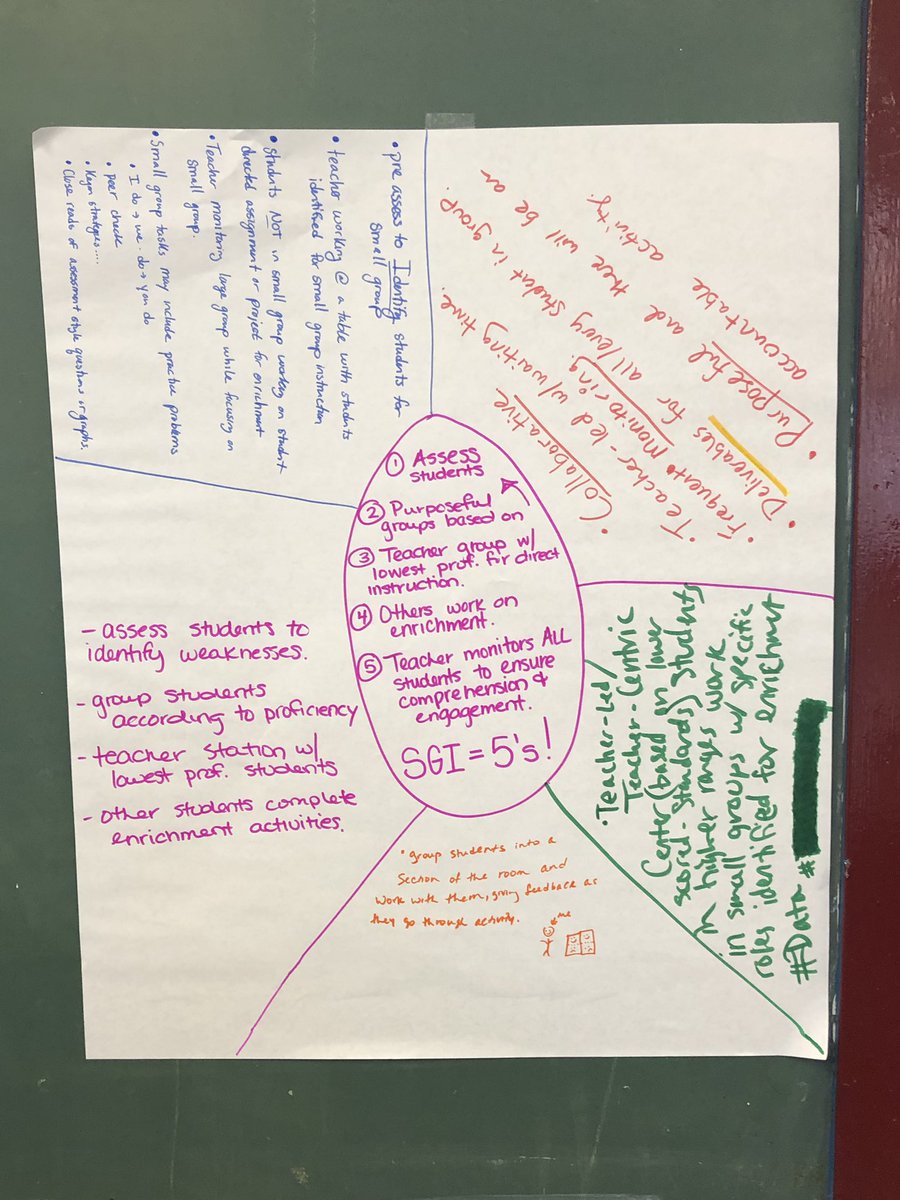 • pre assess to Identify students for
small group
• teacher working @ a table with students
identified for small group instruction
• Students NOT in small group working on student
directed assignment or project for enrichment
• Teacher monitoring large group while focusing on
small group.
• Small group tasks may include practice problems
• I do → we do → you do
• peer check
• Kagan strategies....
• Close reads of assessment style questions or graphs.
• Collaborative
• Teacher-led w/waiting time.
• Frequent monitoring
all/every student in group
• Deliverables for
• Purposeful and there will be an
accountable activity.
① Assess
students
② Purposeful
groups based on
③ Teacher group w/
lowest prof. for direct
instruction.
④ Others work on
enrichment.
⑤ Teacher monitors ALL
students to ensure
comprehension &
engagement.
SGI = 5's!
- assess students to
identify weaknesses.
- group students
according to proficiency
- teacher station w/
lowest prof. students
- other students complete
enrichment activities.
• group students into a
section of the room and
work with them, giving feedback as
they go through activity.
me
• Teacher-Led/
Teacher-Centric
Center (based on lower
scored-standards) students
in higher ranges work
in small groups w/ specific
roles identified for enrichment
#Data #